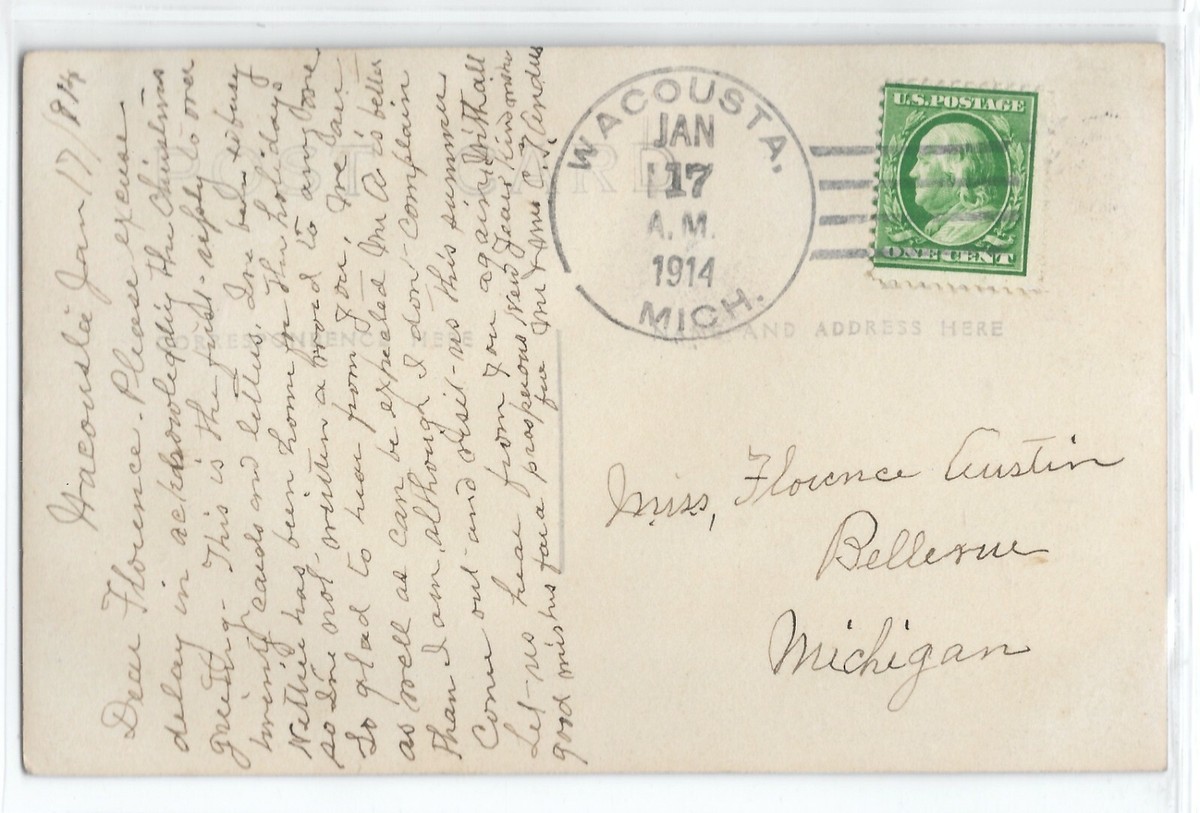 POST CARD
Wacousta Jan 17/914
Dear Florence. Please excuse
delay in acknowledging the Christmas
greeting. This is the first reply to over
twenty cards and letters, Ive been so busy
Nettie has been home for the holidays
so Ive not written a word to anyone
So glad to hear from you, Ime Sure
as well as can be expected Mr A is better
than I am, although I don't complain
Come out and visit us this summer
Let us hear from you again With all
good wishes for a prosperous New Year Kind wishes
for Mr & Mrs C.
CORRESPONDENCE HERE
WACOUSTA,
JAN
17
A.M.
1914
MICH.
U.S. POSTAGE
ONE CENT
NAME AND ADDRESS HERE
Miss, Florence Austin
Bellevue
Michigan